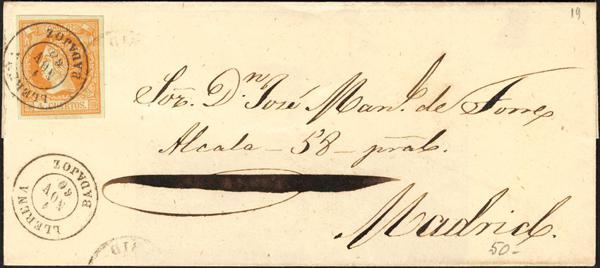 19
BADAJOZ
LLERENA
CUARTOS
Sor. D.n José Man.l de Torres
Alcala - 58 - pral.
Madrid.
50-
BADAJOZ
1
NOV
60
LLERENA